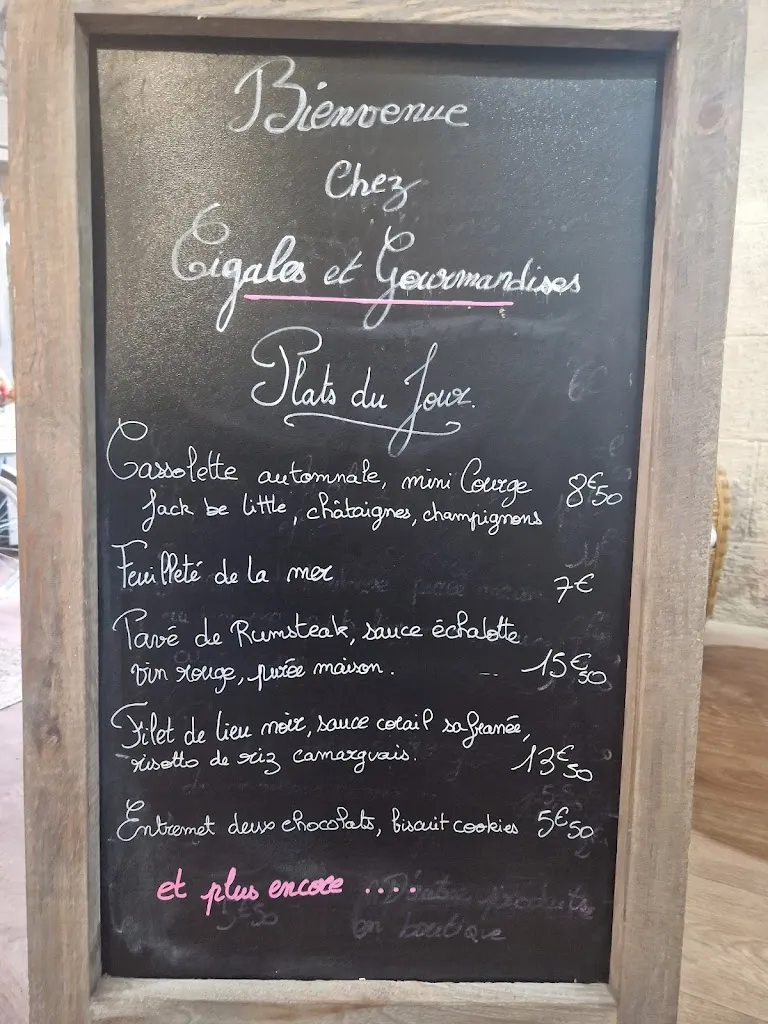 Bienvenue
Chez
Cigales et Gourmandises
Plats du Jour.
Cassolette automnale, mini Courge 8€50
Jack be little, châtaignes, champignons
Feuilleté de la mer 7€
Pavé de Rumsteak, sauce échalotte
vin rouge, purée maison. .. 15€50
Filet de lieu noir, sauce corail safranée,
risotto de riz camarguais. 13€50
Entremet deux chocolats, biscuit cookies 5€50
et plus encore ....
produits
en boutique